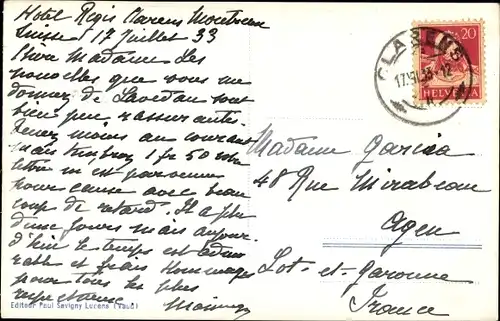 Hotel Regis Clarens Montreux
Suisse 17 Juillet 33
Chère Madame Les
nouvelles que vous me
donnez de Lavedan sont
bien peu rassurantes
Tenez moi au courant
mais 1 fr 50 votre
lettre m est parvenue
pour cause avec beau
coup de retard. Il a plu
deux jours mais aujour
d'hui le temps est
et frais Hommages
pour tous les plus
respectueux
Editeur Paul Savigny Lucens (Vaud)
20
HELVETIA
CLARENS
17.VII.33. 12
Madame Garcia
48 Rue Mirabeau
Agen
Lot-et-Garonne
France